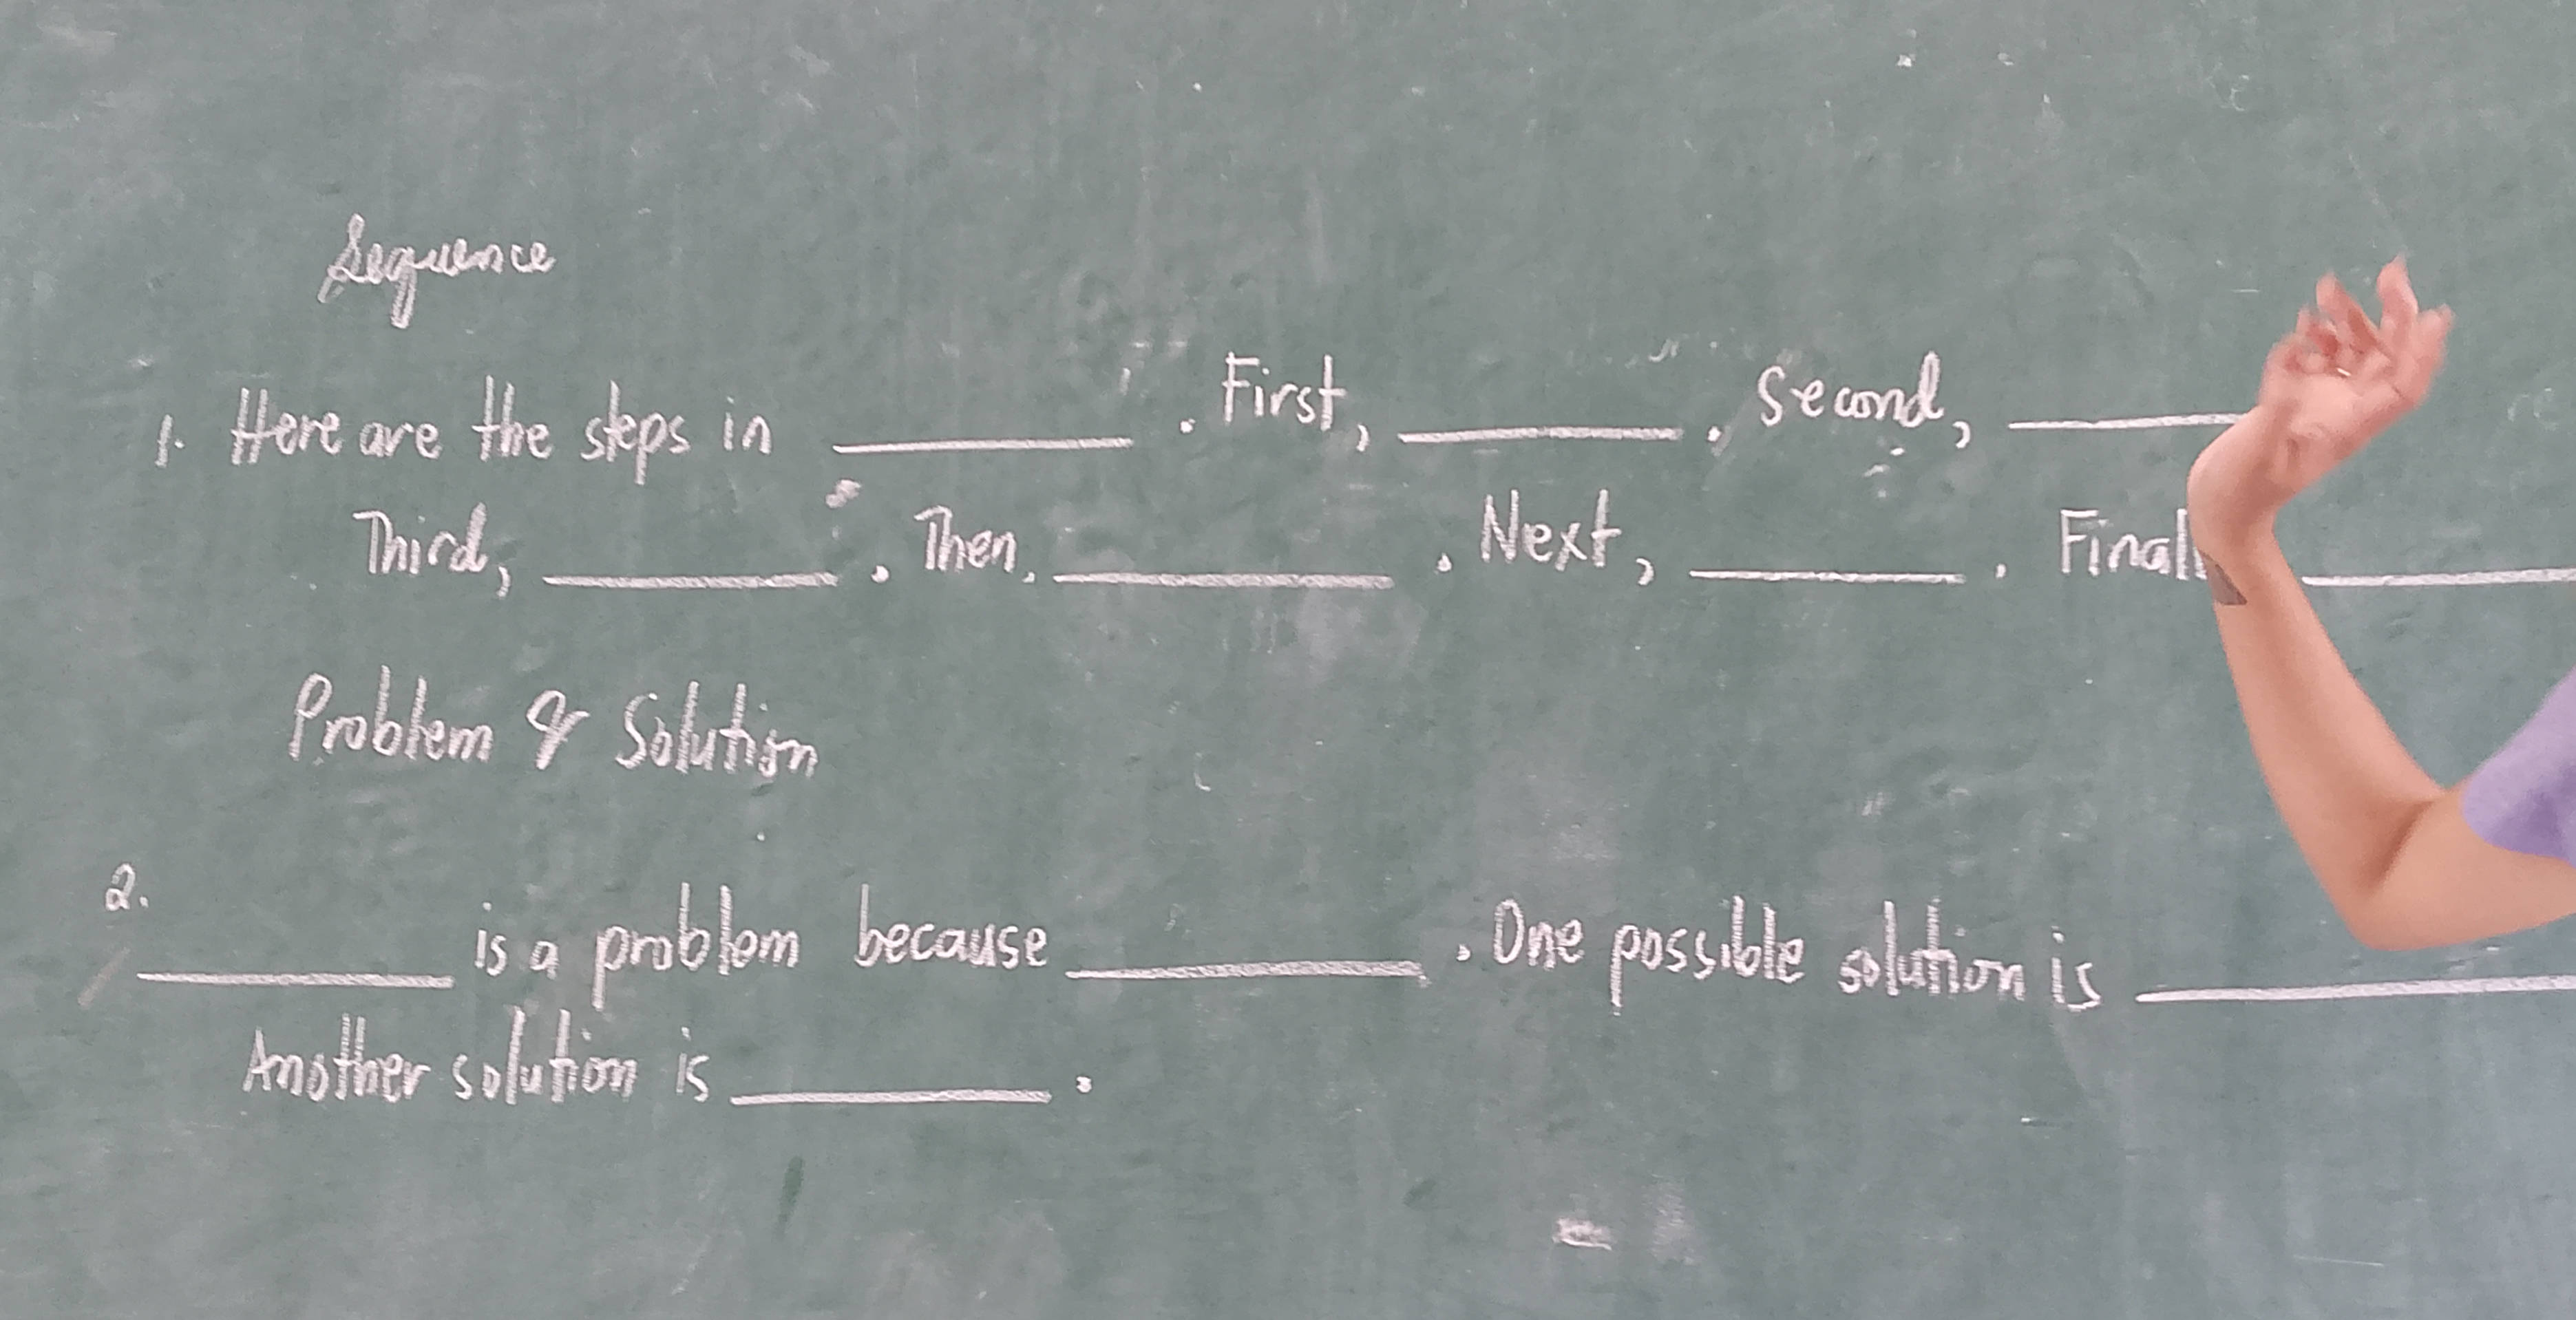 Sequence
1. Here are the steps in ________. First, ________. Second, ________
Third, ________. Then, ________. Next, ________. Finall ________
Problem & Solution
2. ________ is a problem because ________. One possible solution is ________
Another solution is ________.